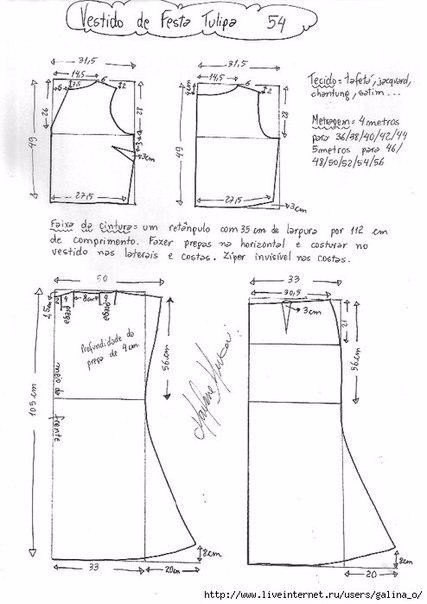 Vestido de Festa Tulipa 54
31,5
14,5
6
6
7,5
2
26
22
49
3cm
27,5
31,5
14,5
6
2
22
49
27,5
3 cm
Tecido= tafetá, jacquard,
chantung, satim...
Metragem= 4 metros
para 36/38/40/42/44
5 metros para 46/
48/50/52/54/56
Faixa da cintura= um retângulo com 35 cm de largura por 112 cm
de comprimento. Fazer pregas na horizontal e costurar no
vestido nas laterais e costas. Zíper invisível nas costas.
50
4
8cm
4
prega
prega
Profundidade da
prega de 4 cm
meio da frente
56 cm
105 cm
33
20cm
2cm
33
30,5
3 cm
21
56 cm
2cm
20
http://www.liveinternet.ru/users/galina_o/